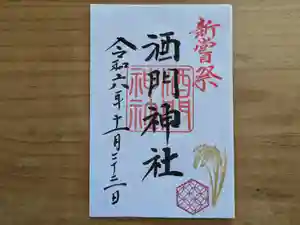 新嘗祭
酒門神社
令和六年十一月二十三日
酒門
神社